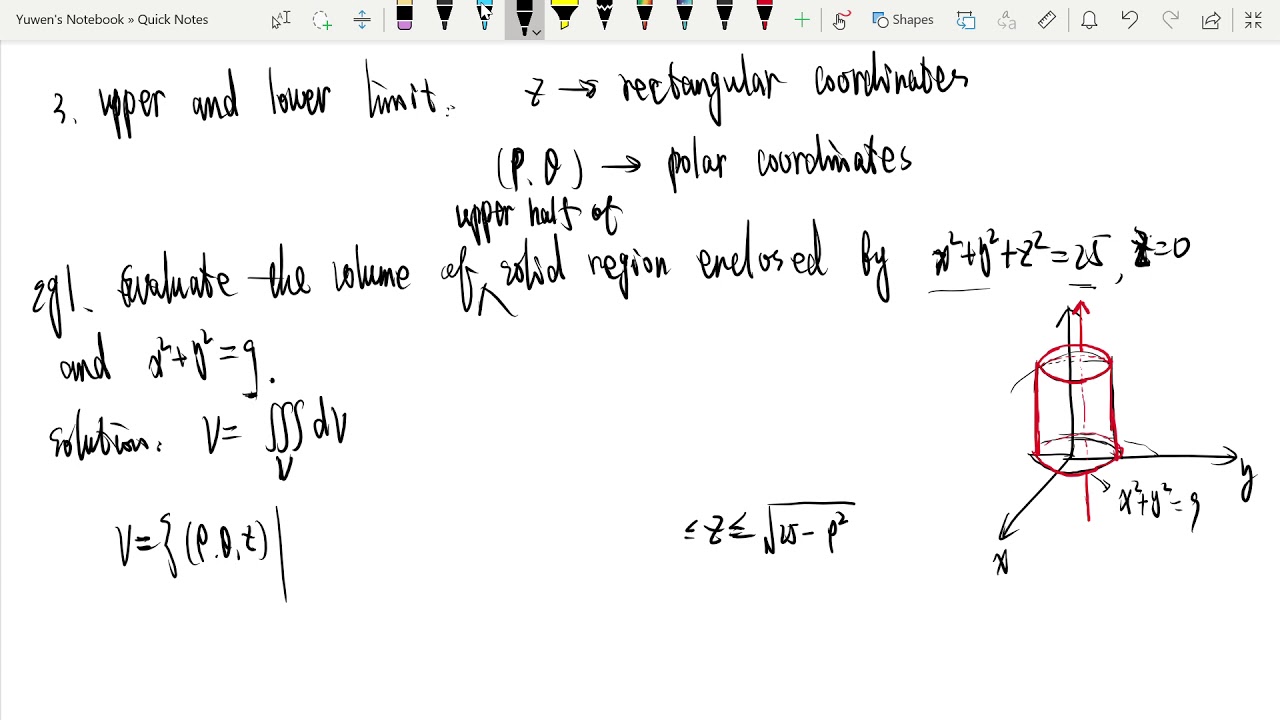 Yuwen's Notebook » Quick Notes
Shapes
3. upper and lower limit: z → rectangular coordinates
(ρ.θ) → polar coordinates
upper half of
eg1. Evaluate the volume of ∧ solid region enclosed by x²+y²+z²=25, z=0
and x²+y²=9.
solution: V= ∭ dV
V
V={(ρ.θ,z)| ≤z≤√25-ρ²
y
x²+y²=9
x